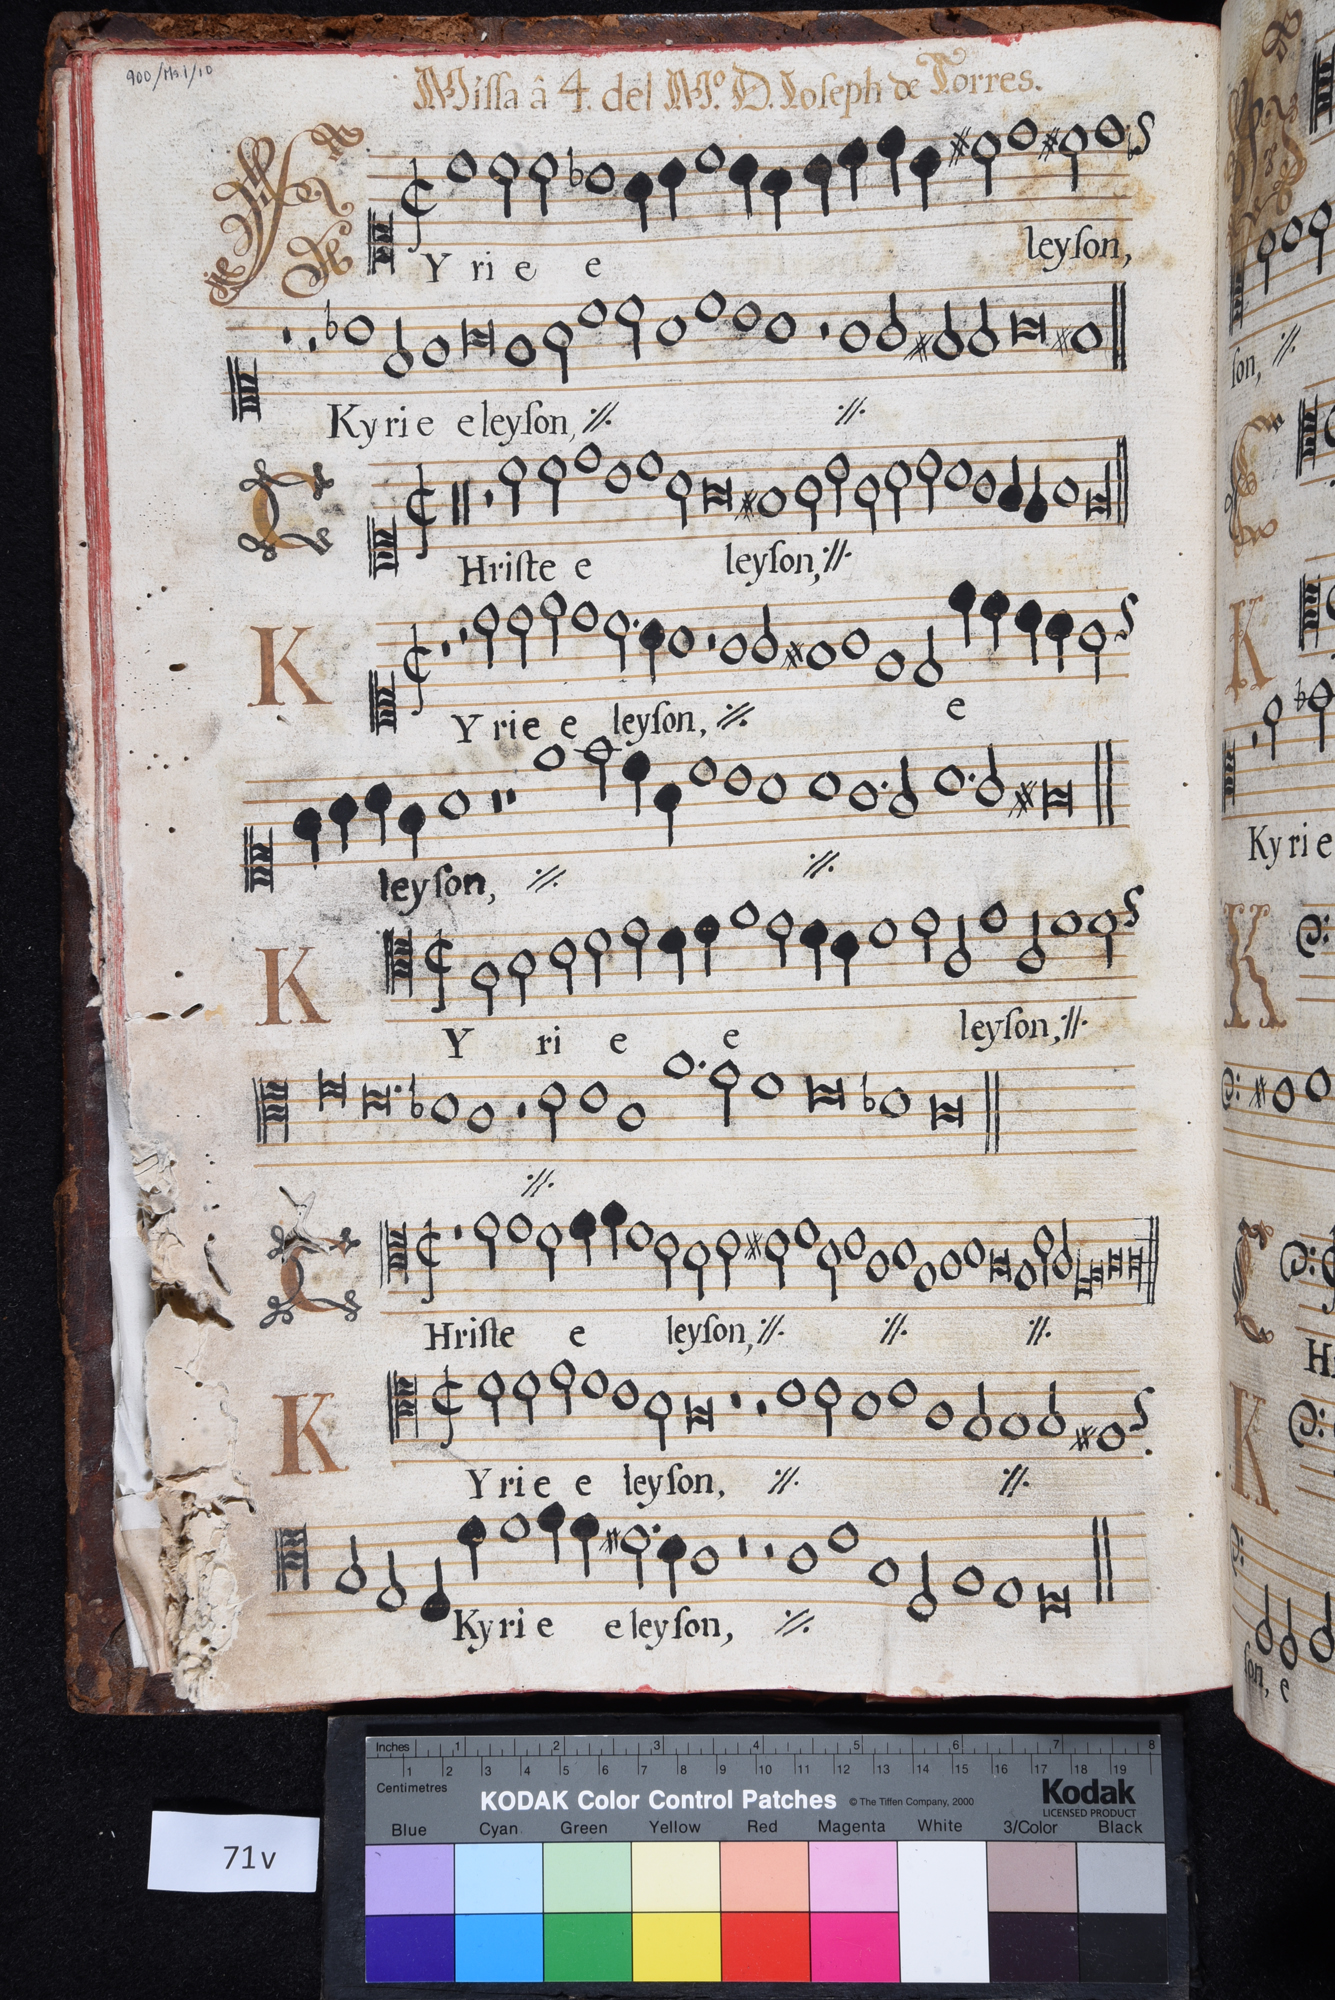 900/Ms 1/10
Missa â 4. del Mº. D. Ioseph de Torres.
Y ri e e leyson,
Kyrie eleyson, ://:
://:
C Hriste e leyson, ://:
K Yrie e leyson, ://: e
leyson, ://: ://:
K Y ri e e leyson, ://:
://:
C Hriste e leyson, ://: ://: ://:
K Yrie e leyson, ://: ://:
Kyrie eleyson, ://:
son, ://:
K
Kyrie
K
H
K
son, e
Inches 1 2 3 4 5 6 7 8
1 2 3 4 5 6 7 8 9 10 11 12 13 14 15 16 17 18 19
Centimetres
KODAK Color Control Patches © The Tiffen Company, 2000 Kodak
LICENSED PRODUCT
Blue Cyan Green Yellow Red Magenta White 3/Color Black
71v